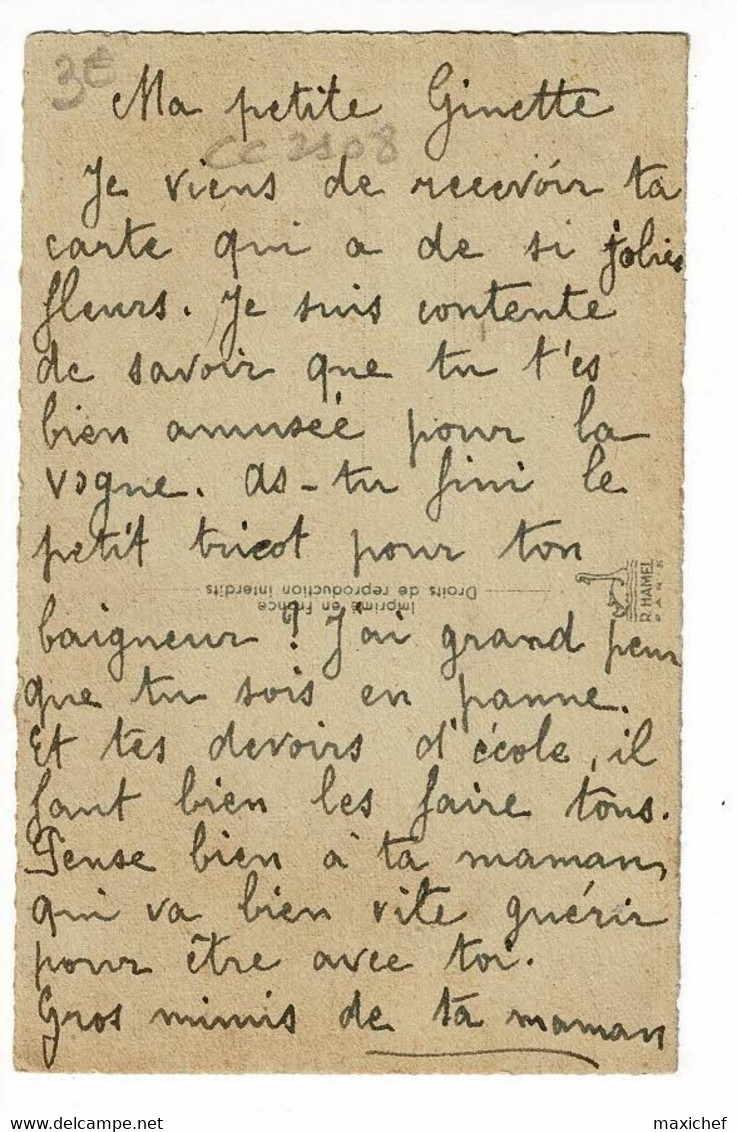 3€
Ma petite Ginette
CC 2108
Je viens de recevoir ta
carte qui a de si jolies
fleurs. Je suis contente
de savoir que tu t'es
bien amusée pour la
vogue. As-tu fini le
petit tricot pour ton
Imprimé en France
Droits de reproduction interdits
R. HAMEL
PARIS
baigneur ? J'ai grand peur
que tu sois en panne.
Et tes devoirs d'école, il
faut bien les faire tous.
Pense bien à ta maman,
qui va bien vite guérir
pour être avec toi.
Gros mimis de ta maman
delcampe.net
maxichef